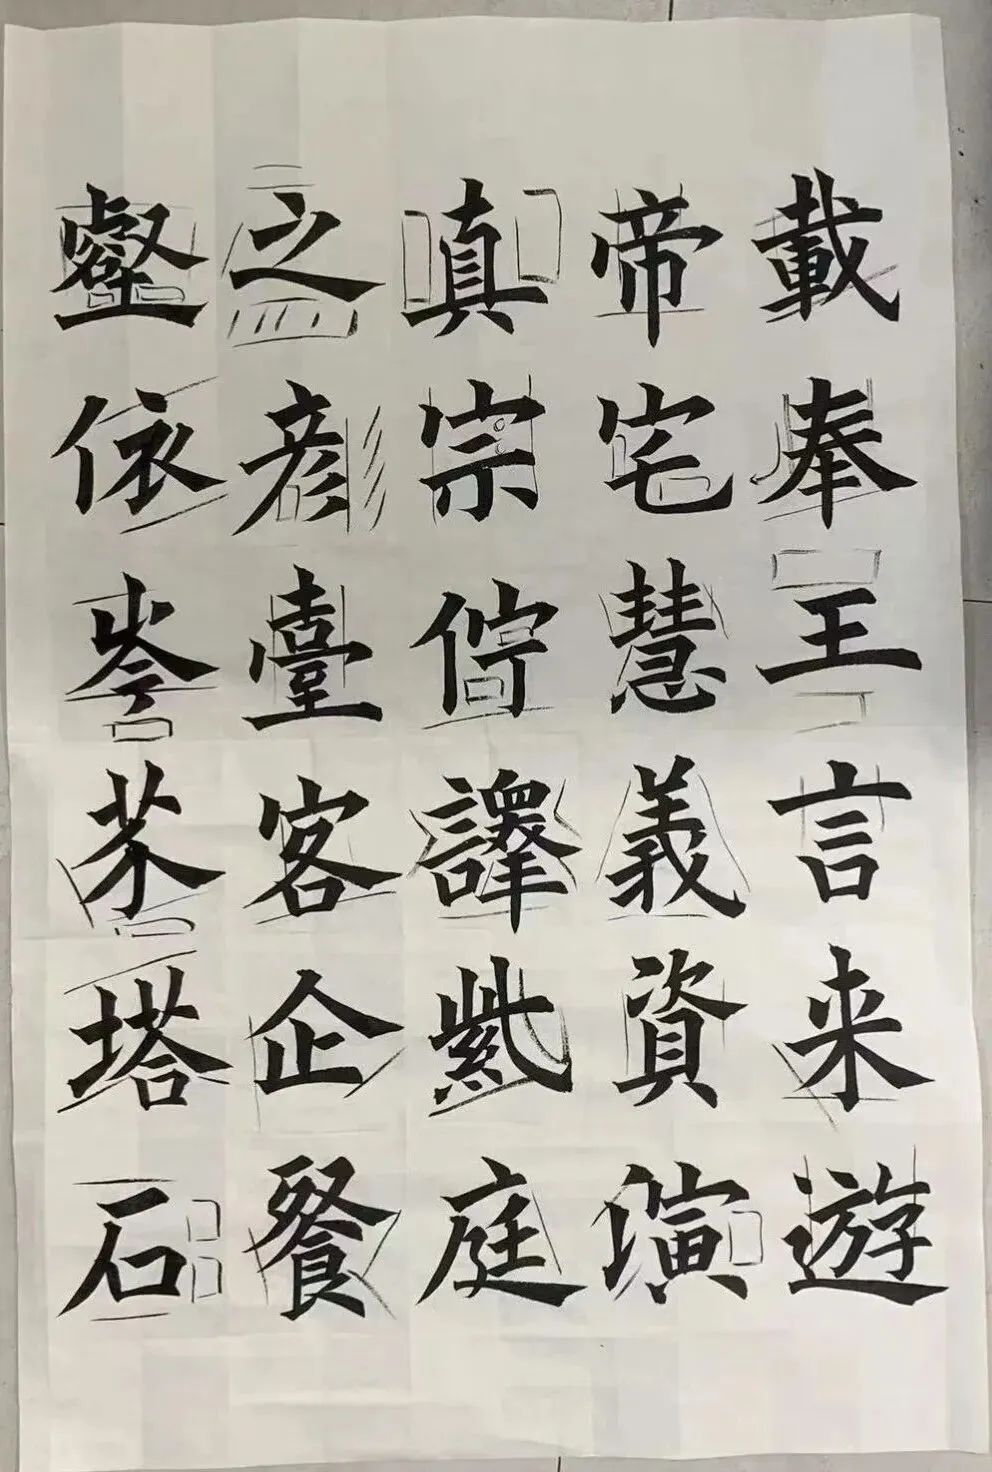 載奉王言来遊
帝宅慧義資演
真宗佇譯紫庭
之彦臺客企餐
壑依岑芥塔石